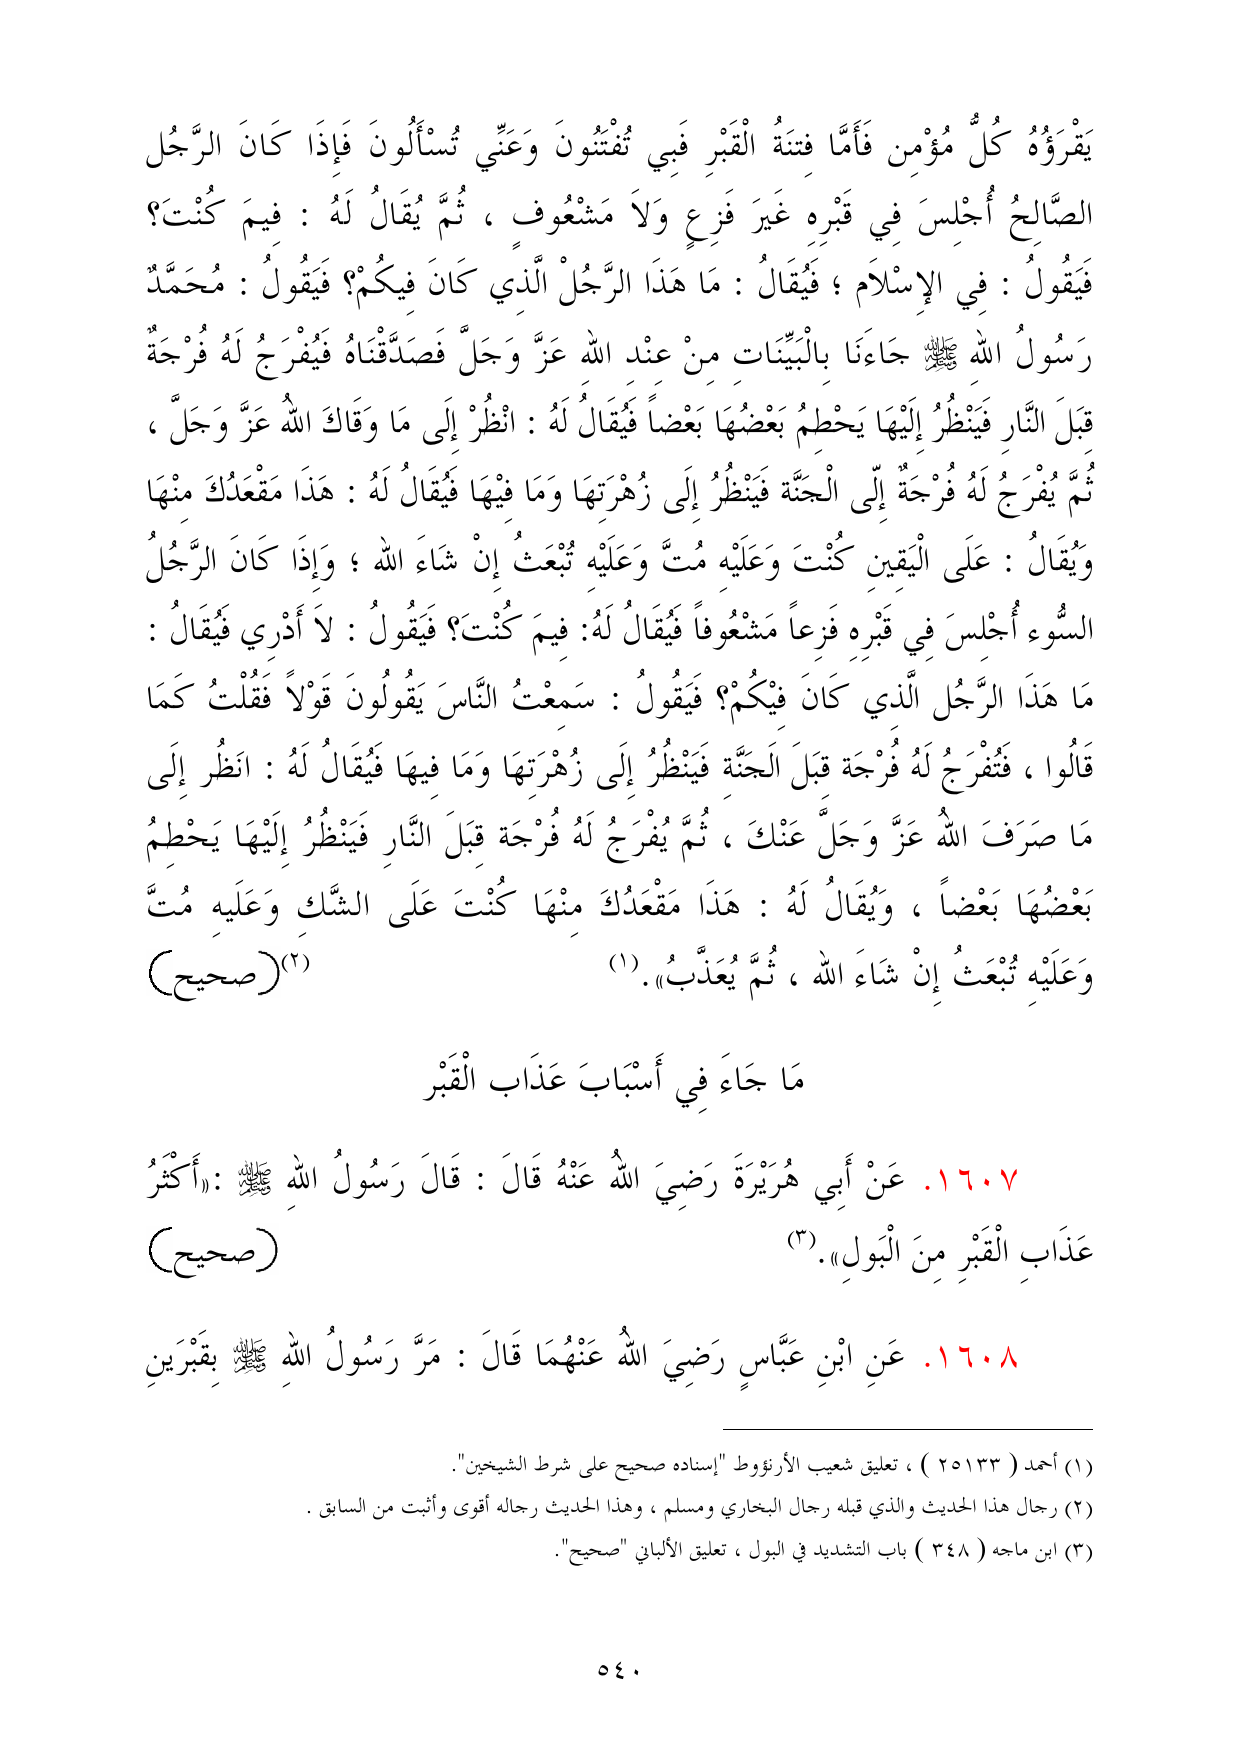 يَقْرَؤُهُ كُلُّ مُؤْمِنِ فَأَمَّا فِتنَةُ الْقَبْرِ فَبِي تُفْتَنُونَ وَعَنِّي تُسْأَلُونَ فَإِذَا كَانَ الرَّجُلِ
الصَّالِحُ أُجْلِسَ فِي قَبْرِهِ غَيرَ فَزِعٍ وَلاَ مَشْعُوفٍ ، ثُمَّ يُقَالُ لَهُ : فِيمَ كُنْتَ؟
فَيَقُولُ : فِي الإِسْلاَمِ ؛ فَيُقَالُ : مَا هَذَا الرَّجُلْ الَّذِي كَانَ فِيكُمْ؟ فَيَقُولُ : مُحَمَّدٌ
رَسُولُ اللهِ ﷺ جَاءَنَا بِالْبَيِّنَاتِ مِنْ عِنْدِ اللهِ عَزَّ وَجَلَّ فَصَدَّقْنَاهُ فَيُفْرَجُ لَهُ فُرْجَةٌ
قِبَلَ النَّارِ فَيَنْظُرُ إِلَيْهَا يَحْطِمُ بَعْضُهَا بَعْضاً فَيُقَالُ لَهُ : انْظُرْ إِلَى مَا وَقَاكَ اللهُ عَزَّ وَجَلَّ ،
ثُمَّ يُفْرَجُ لَهُ فُرْجَةٌ إِلّى الْجَنَّةِ فَيَنْظُرُ إِلَى زُهْرَتِهَا وَمَا فِيْهَا فَيُقَالُ لَهُ : هَذَا مَقْعَدُكَ مِنْهَا
وَيُقَالُ : عَلَى الْيَقِينِ كُنْتَ وَعَلَيْهِ مُتَّ وَعَلَيْهِ تُبْعَثُ إِنْ شَاءَ الله ؛ وَإِذَا كَانَ الرَّجُلُ
السُّوءِ أُجْلِسَ فِي قَبْرِهِ فَزِعاً مَشْعُوفاً فَيُقَالُ لَهُ: فِيمَ كُنْتَ؟ فَيَقُولُ : لاَ أَدْرِي فَيُقَالُ :
مَا هَذَا الرَّجُلِ الَّذِي كَانَ فِيْكُمْ؟ فَيَقُولُ : سَمِعْتُ النَّاسَ يَقُولُونَ قَوْلاً فَقُلْتُ كَمَا
قَالُوا ، فَتُفْرَجُ لَهُ فُرْجَة قِبَلَ اَلجَنَّةِ فَيَنْظُرُ إِلَى زُهْرَتِهَا وَمَا فِيهَا فَيُقَالُ لَهُ : انَظُر إِلَى
مَا صَرَفَ اللهُ عَزَّ وَجَلَّ عَنْكَ ، ثُمَّ يُفْرَجُ لَهُ فُرْجَة قِبَلَ النَّارِ فَيَنْظُرُ إِلَيْهَا يَحْطِمُ
بَعْضُهَا بَعْضاً ، وَيُقَالُ لَهُ : هَذَا مَقْعَدُكَ مِنْهَا كُنْتَ عَلَى الشَّكِ وَعَلَيهِ مُتَّ
وَعَلَيْهِ تُبْعَثُ إِنْ شَاءَ الله ، ثُمَّ يُعَذَّبُ».(١) (صحيح)(٢)
مَا جَاءَ فِي أَسْبَابَ عَذَاب الْقَبْر
١٦٠٧. عَنْ أَبِي هُرَيْرَةَ رَضِيَ اللهُ عَنْهُ قَالَ : قَالَ رَسُولُ اللهِ ﷺ :«أَكْثَرُ
عَذَابِ الْقَبْرِ مِنَ الْبَولِ».(٣) (صحيح)
١٦٠٨. عَنِ ابْنِ عَبَّاسٍ رَضِيَ اللهُ عَنْهُمَا قَالَ : مَرَّ رَسُولُ اللهِ ﷺ بِقَبْرَينِ
(١) أحمد ( ٢٥١٣٣ ) ، تعليق شعيب الأرنؤوط "إسناده صحيح على شرط الشيخين".
(٢) رجال هذا الحديث والذي قبله رجال البخاري ومسلم ، وهذا الحديث رجاله أقوى وأثبت من السابق .
(٣) ابن ماجه ( ٣٤٨ ) باب التشديد في البول ، تعليق الألباني "صحيح".
٥٤٠